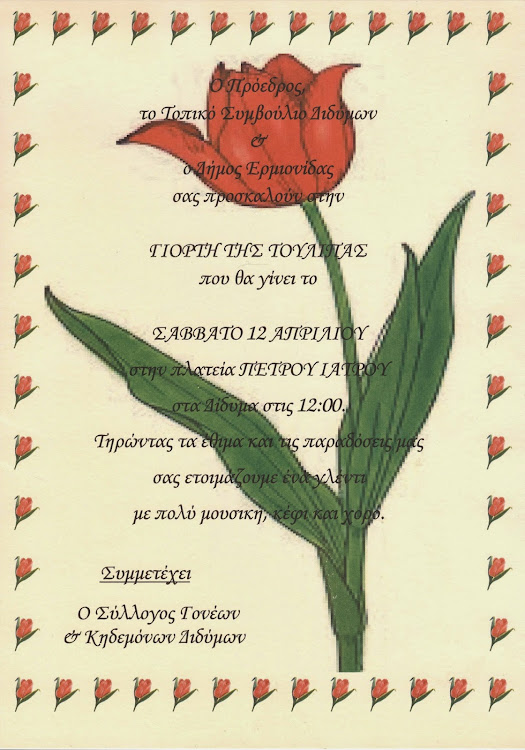 Ο Πρόεδρος,
το Τοπικό Συμβούλιο Διδύμων
&
ο Δήμος Ερμιονίδας
σας προσκαλούν στην
ΓΙΟΡΤΗ ΤΗΣ ΤΟΥΛΙΠΑΣ
που θα γίνει το
ΣΑΒΒΑΤΟ 12 ΑΠΡΙΛΙΟΥ
στην πλατεία ΠΕΤΡΟΥ ΙΑΤΡΟΥ
στα Δίδυμα στις 12:00.
Τηρώντας τα έθιμα και τις παραδόσεις μας
σας ετοιμάζουμε ένα γλέντι
με πολύ μουσικη, κέφι και χορό.
Συμμετέχει
Ο Σύλλογος Γονέων
& Κηδεμόνων Διδύμων